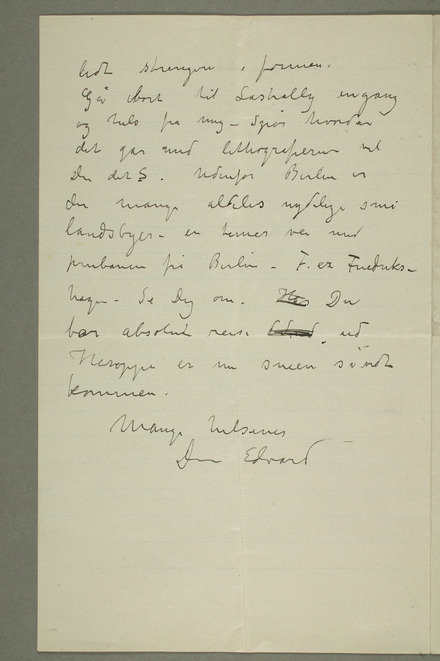 lidt strengere i formen.
Gå bort til Lassally engang
og hils fra mig – Spør hvordan
det går med lithografierne vil
Du det S. Udenfor Berlin er
der mange aldeles nydelige små
landsbyer – en times vei med
jernbanen fra Berlin – F. ex Friedriks–
hagen – Se Dig om. Du
bør absolut reise ud
Heroppe er nu sneen så vidt
kommen.
Mange hilsener
Din Edvard